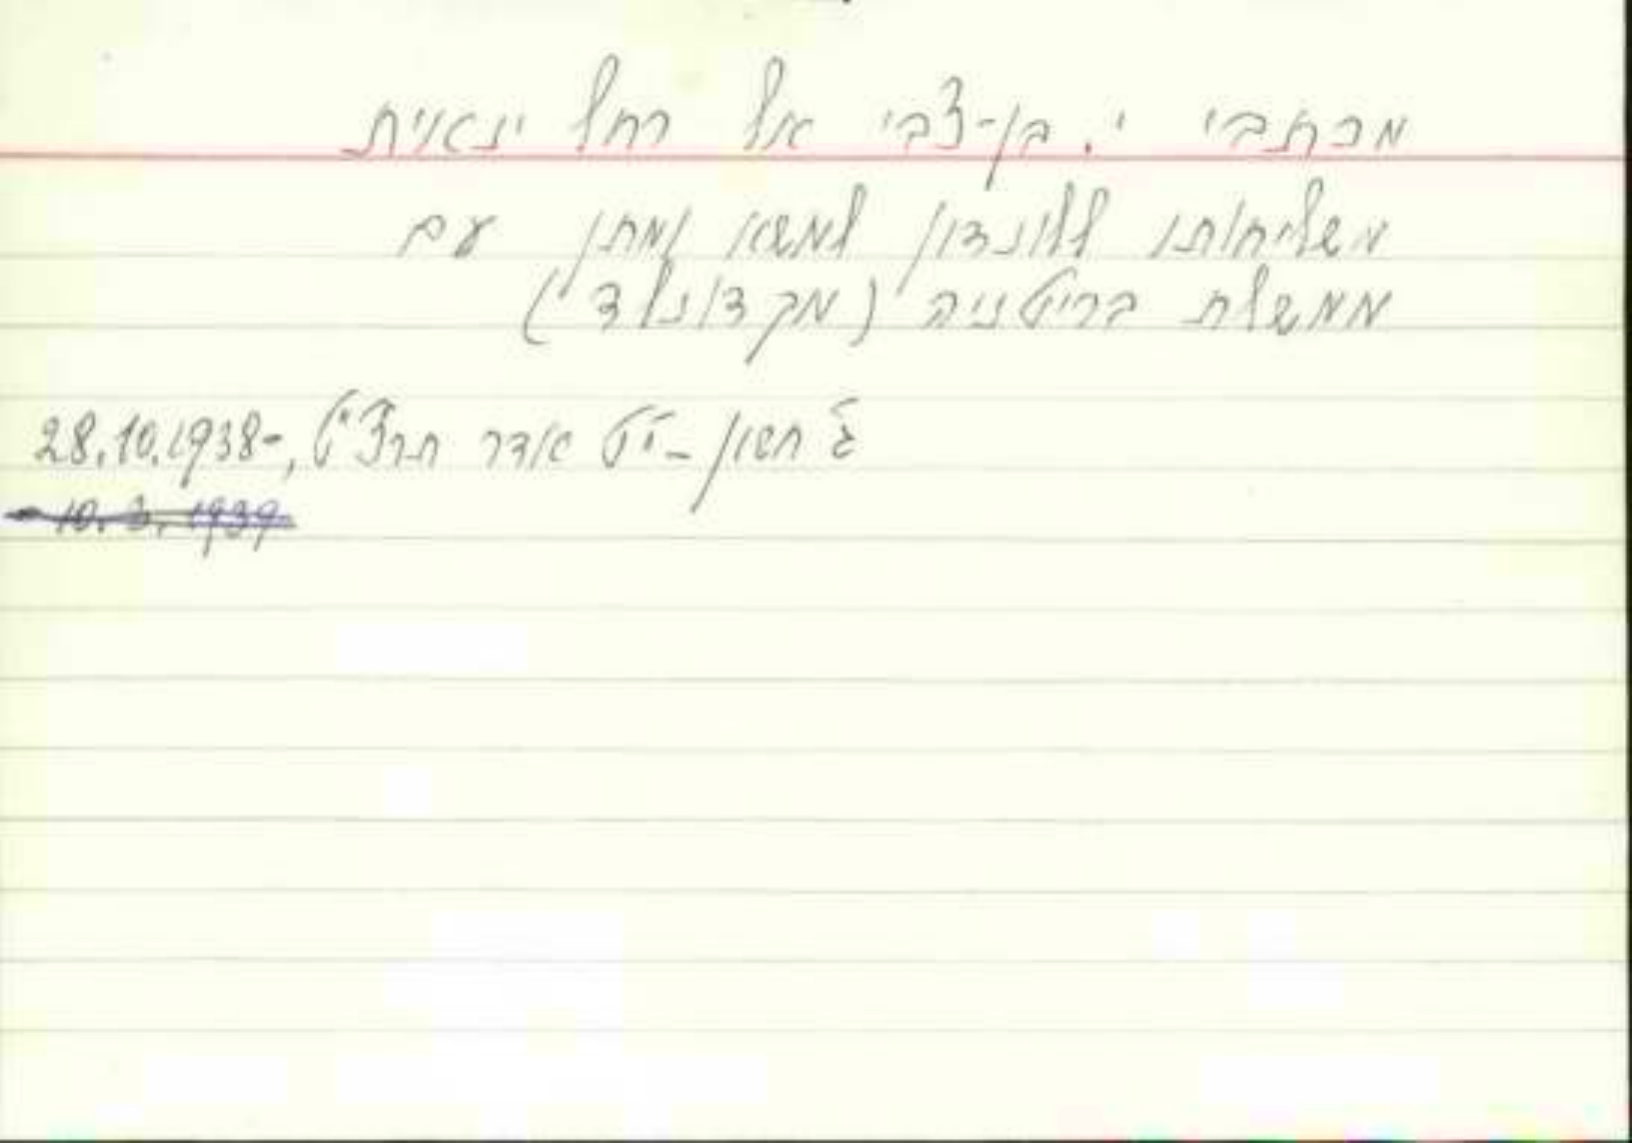 מכתבי י. בן-צבי אל רחל ינאית
משליחותו ללונדון למשא ומתן עם
ממשלת בריטניה (מקדונלד)
ג' חשון - י"ט אדר תרצ"ט, 28.10.1938-
10.3.1939